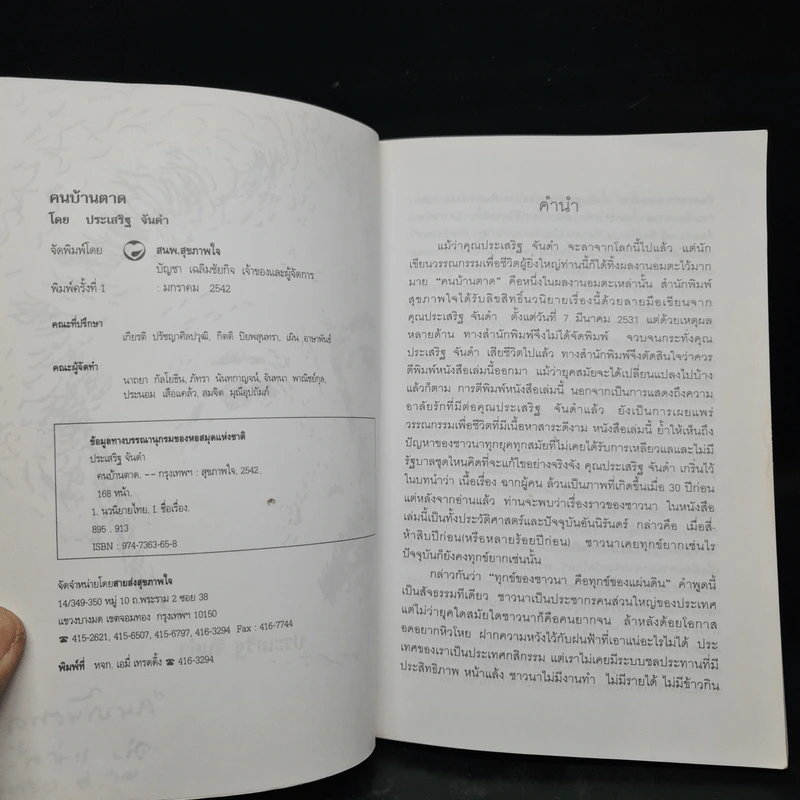 คนบ้านตาด
โดย ประเสริฐ จันดำ
จัดพิมพ์โดย สนพ.สุขภาพใจ
บัญชา เฉลิมชัยกิจ เจ้าของและผู้จัดการ
พิมพ์ครั้งที่ 1 : มกราคม 2542
คณะที่ปรึกษา
เกียรติ ปรัชญาศิลปวุฒิ, กิตติ ปิยพสุนทรา, เผ้น อาษาพันธ์
คณะผู้จัดทำ
นาถยา กัลโยธิน, ภัทรา นันทกาญจน์, จันทนา พาณิชย์กุล,
ประนอม เสือแคล้ว, สมจิต มุณีอุปถัมภ์
ข้อมูลทางบรรณานุกรมของหอสมุดแห่งชาติ
ประเสริฐ จันดำ
คนบ้านตาด. -- กรุงเทพฯ : สุขภาพใจ, 2542.
168 หน้า.
1. นวนิยายไทย, I. ชื่อเรื่อง.
895 . 913
ISBN : 974-7363-65-8
จัดจำหน่ายโดยสายส่งสุขภาพใจ
14/349-350 หมู่ 10 ถ.พระราม 2 ซอย 38
แขวงบางมด เขตจอมทอง กรุงเทพฯ 10150
☎ 415-2621, 415-6507, 415-6797, 416-3294 Fax : 416-7744
พิมพ์ที่ หจก. เอมี่ เทรดดิ้ง ☎ 416-3294
คำนำ
แม้ว่าคุณประเสริฐ จันดำ จะลาจากโลกนี้ไปแล้ว แต่นัก
เขียนวรรณกรรมเพื่อชีวิตผู้ยิ่งใหญ่ท่านนี้ก็ได้ทิ้งผลงานอมตะไว้มาก
มาย “คนบ้านตาด” คือหนึ่งในผลงานอมตะเหล่านั้น สำนักพิมพ์
สุขภาพใจได้รับลิขสิทธิ์นวนิยายเรื่องนี้ด้วยลายมือเขียนจาก
คุณประเสริฐ จันดำ ตั้งแต่วันที่ 7 มีนาคม 2531 แต่ด้วยเหตุผล
หลายด้าน ทางสำนักพิมพ์จึงไม่ได้จัดพิมพ์ จวบจนกระทั่งคุณ
ประเสริฐ จันดำ เสียชีวิตไปแล้ว ทางสำนักพิมพ์จึงตัดสินใจว่าควร
ตีพิมพ์หนังสือเล่มนี้ออกมา แม้ว่ายุคสมัยจะได้เปลี่ยนแปลงไปบ้าง
แล้วก็ตาม การตีพิมพ์หนังสือเล่มนี้ นอกจากเป็นการแสดงถึงความ
อาลัยรักที่มีต่อคุณประเสริฐ จันดำแล้ว ยังเป็นการเผยแพร่
วรรณกรรมเพื่อชีวิตที่มีเนื้อหาสาระดีงาม หนังสือเล่มนี้ ย้ำให้เห็นถึง
ปัญหาของชาวนาทุกยุคทุกสมัยที่ไม่เคยได้รับการเหลียวแลและไม่มี
รัฐบาลชุดไหนคิดที่จะแก้ไขอย่างจริงจัง คุณประเสริฐ จันดำ เกริ่นไว้
ในบทนำว่า เนื้อเรื่อง ฉากผู้คน ล้วนเป็นภาพที่เกิดขึ้นเมื่อ 30 ปีก่อน
แต่หลังจากอ่านแล้ว ท่านจะพบว่าเรื่องราวของชาวนา ในหนังสือ
เล่มนี้เป็นทั้งประวัติศาสตร์และปัจจุบันอันนิรันดร์ กล่าวคือ เมื่อสี่-
ห้าสิบปีก่อน(หรือหลายร้อยปีก่อน) ชาวนาเคยทุกข์ยากเช่นไร
ปัจจุบันก็ยังคงทุกข์ยากเช่นนั้น
กล่าวกันว่า “ทุกข์ของชาวนา คือทุกข์ของแผ่นดิน” คำพูดนี้
เป็นสัจธรรมทีเดียว ชาวนาเป็นประชากรคนส่วนใหญ่ของประเทศ
แต่ไม่ว่ายุคใดสมัยใดชาวนาก็คือคนยากจน ล้าหลังด้อยโอกาส
อดอยากหิวโหย ฝากความหวังไว้กับฝนฟ้าที่เอาแน่อะไรไม่ได้ ประ
เทศของเราเป็นประเทศกสิกรรม แต่เราไม่เคยมีระบบชลประทานที่มี
ประสิทธิภาพ หน้าแล้ง ชาวนาไม่มีงานทำ ไม่มีรายได้ ไม่มีข้าวกิน